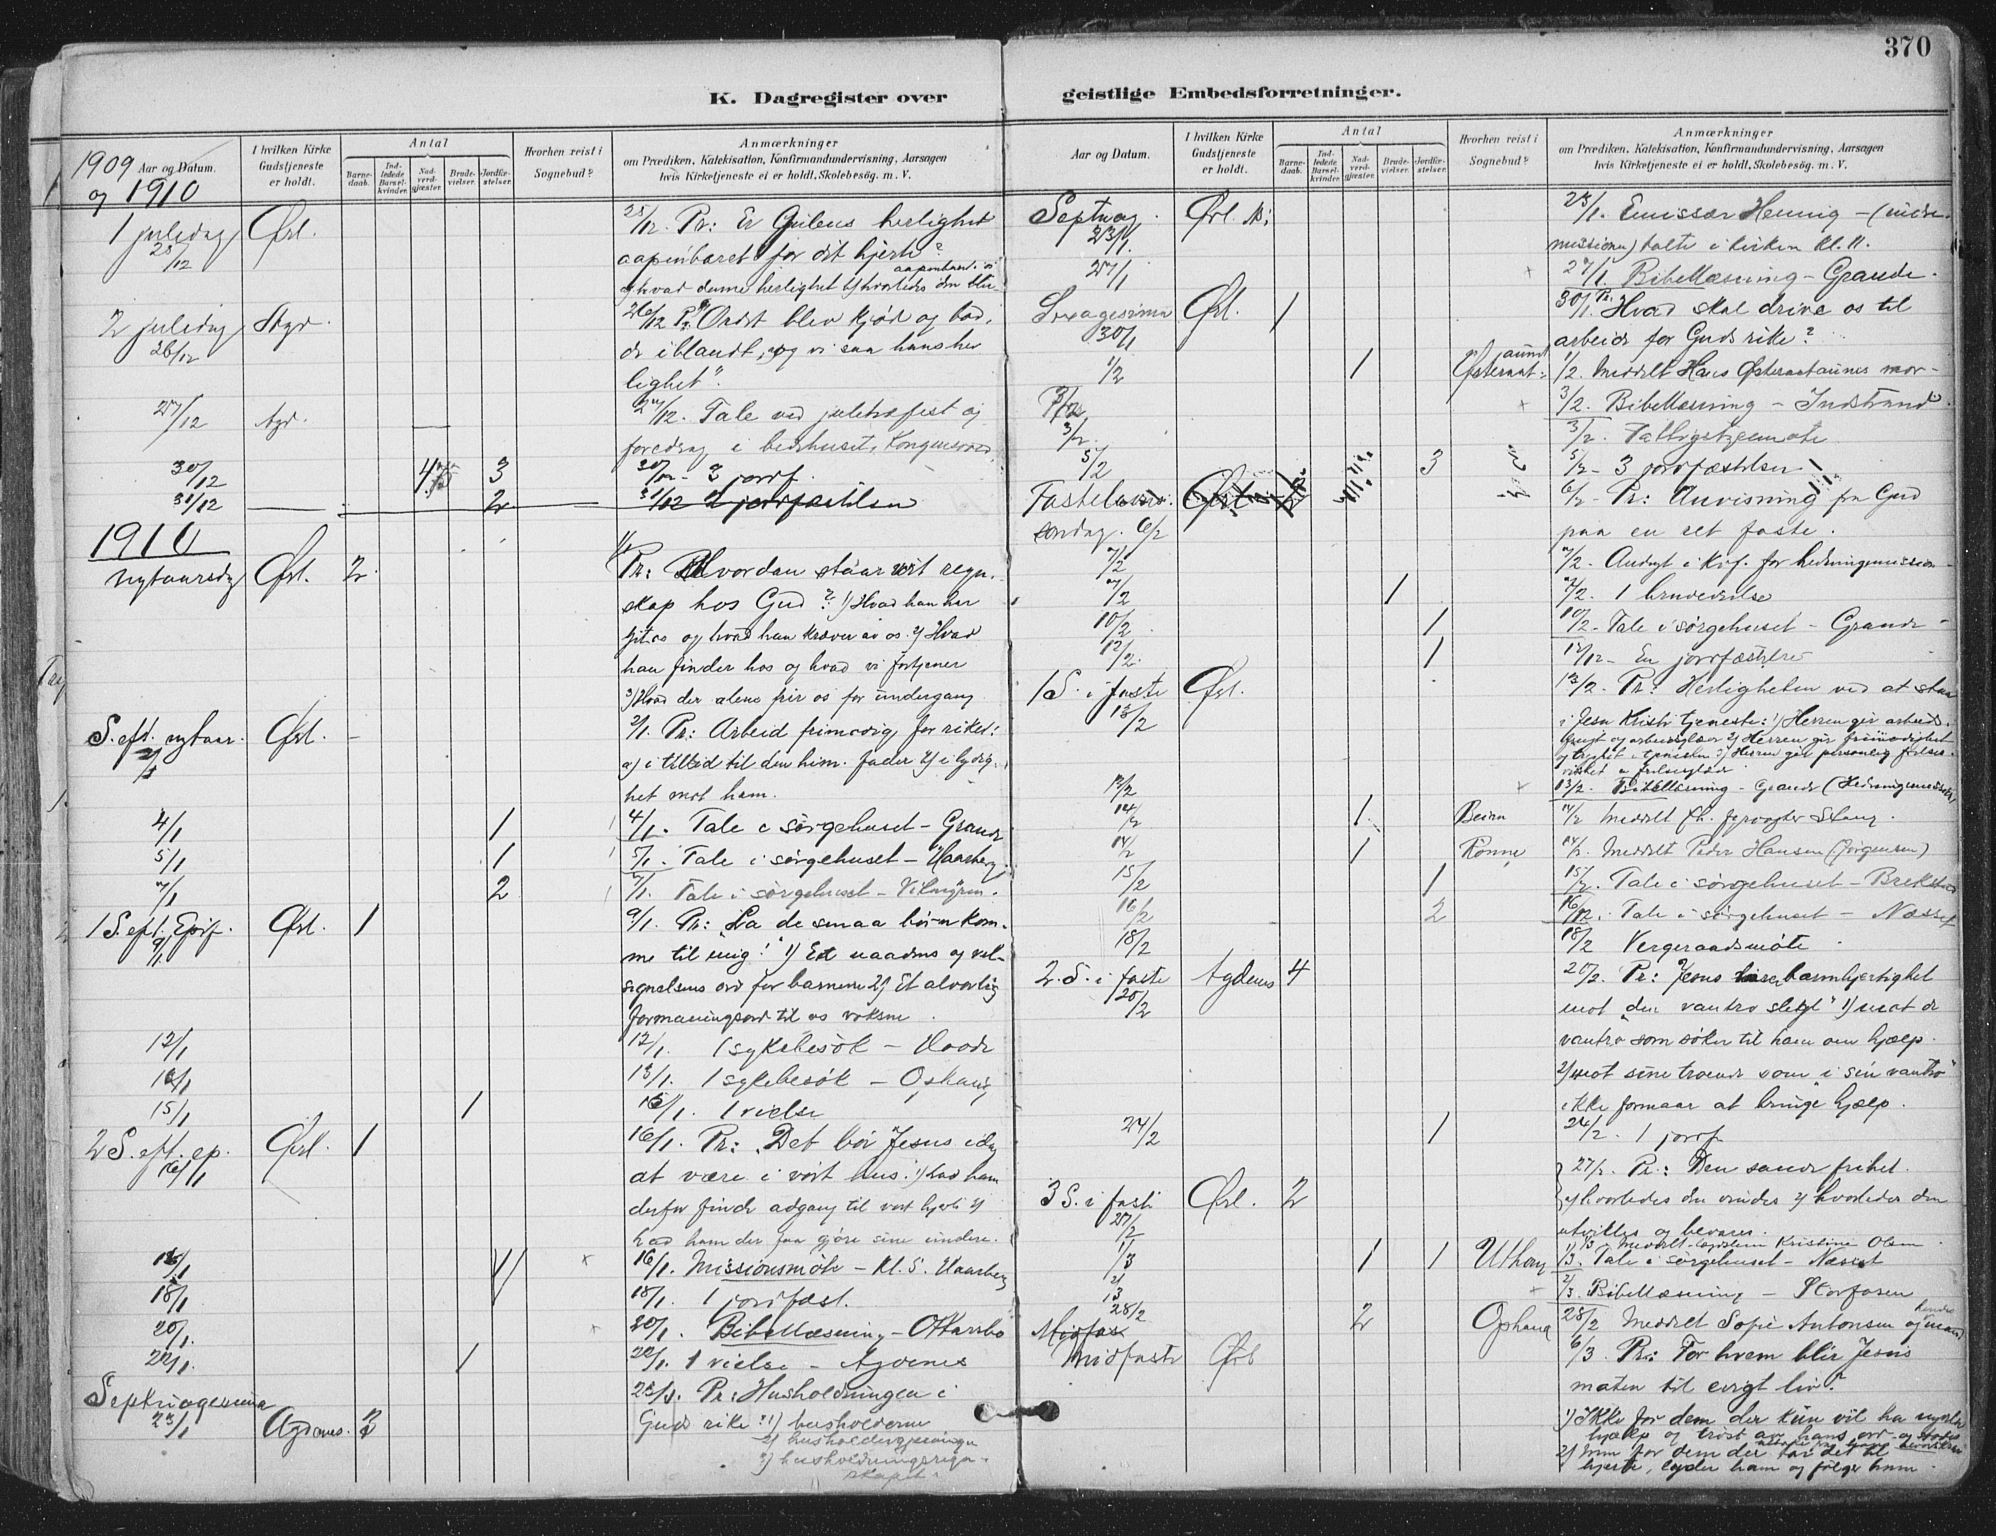 370
K. Dagregister over geistlige Embedsforretninger.
1909 Aar og Datum.
og 1910
I hvilken Kirke Gudstjeneste er holdt.
Antal
Barnedaab.
Indledede Barselkvinder.
Nadverdgjæster.
Brudevielser.
Jordfæstelser.
Hvorhen reist i Sognebud?
Anmærkninger
om Prædiken, Katekisation, Konfirmandundervisning, Aarsagen
hvis Kirketjeneste ei er holdt, Skolebesøg. m. V.
1 juledag Ørl. 25/12. Pr: Er Guds herlighet
25/12 aapenbaret for dit hjerte?
2 juledag Agd. 26/12 Pr. "Ordet blev kjød og bod,
26/12 de iblandt, og vi saa hans her
lighet".
27/12 Agd. 27/12. Tale ved juletræfest og
foredrag i bedehuset, Kongensvold.
30/12 3 30/12 - 3 jordf.
31/12 2 31/12 2 jordfæstelser
1910
Nytaarsdag Ørl. 2 1/1 Pr: Hvordan staar vort regn.
skap hos Gud? 1) Hvad han har
git os og hvad han kræver av os. 2) Hvad
han finder hos og hvad vi fortjener
3) Hvad der alene frir os for undergang
S. eft. nytaar. Ørl. - 2/1. Pr: Arbeid frimodig for riket:
2/1 a) i tillid til den him. fader 2) i lydig-
het mot ham.
4/1 1 4/1. Tale i sørgehuset - Grande
5/1 1 5/1. Tale i sørgehuset - Haarberg
7/1 2 7/1. Tale i sørgehuset -
1 S. eft. Epif. Ørl. 1 9/1. Pr: "La de smaa børn kom-
9/1 me til mig!" 1) Et naadens og vel-
signelsens ord for barnene 2) Et alvorlig
formaningsord til os voksne.
12/1 12/1. 1 sykebesøk - Hoode
13/1. 1 sykebesøk - Ophaug
15/1 1 15/1. 1 vielse
2 S. eft. ep. Ørl. 1 16/1. Pr: "Det bør Jesus idag
16/1 at være i vort hus." 1) Lad ham
derfor finde adgang til vort hjerte 2)
Lad ham der faa gjøre sine undere.
16/1 16/1. Missionsmøte - kl. 5. Haarberg
18/1 1 18/1. 1 jordfæst.
20/1 20/1. Bibellæsning - Ottersbo
22/1. 1 22/1. 1 vielse - Agdenes
Septuagesima 23/1. Pr: Husholdningen i
23/1 Agdenes. 2 Guds rike: 1) husholderne
2) husholdergjerningen
3) husholdningsregn-
skapet.
Aar og Datum.
I hvilken Kirke Gudstjeneste er holdt.
Antal
Barnedaab.
Indledede Barselkvinder.
Nadverdgjæster.
Brudevielser.
Jordfæstelser.
Hvorhen reist i Sognebud?
Anmærkninger
om Prædiken, Katekisation, Konfirmandundervisning, Aarsagen
hvis Kirketjeneste ei er holdt, Skolebesøg. m. V.
Septuag. Ørl. 23/1. Emissær Hennig - (indre-
23/1. missionen) talte i kirken kl. 11.
27/1 27/1. Bibellæsning - Grande.
Sexagesima Ørl. 1 30/1. Pr. Hvad skal drive os til
30/1 arbeide for Guds rike?
1/2 1 1/2. Meddelt Hans Østeraataunes mor -
3/2 3/2. Bibellæsning - Indstrand.
3/2. 3/2. Fattigstyremøte
5/2 3 5/2 - 3 jordfæstelser
Fastelavns- Ørl. 6/2 - Pr: Anvisning fra Gud
søndag. 6/2 paa en ret faste.
7/2 7/2. Andagt i Kvf. for hedningemission
7/2 1 7/2. 1 brudevielse
10/2 1 10/2 - Tale i sørgehuset - Grande -
12/2. 1 12/12 - En jordfæstelse
1 S. i faste Ørl. 13/2. Pr: Herligheten ved at staa
13/2 i Jesu Kristi tjeneste: 1) Herren gir arbeids-
frugt og arbeidsglæde 2) Herren gir frimodighet
og tryghet i tjenesten 3) Herren gir personlig frelses-
vished og frelsesglæde
13/2 13/2. Bibellæsning - Grande (Hedningemission)
14/2 1 Beian 14/2 Meddelt fh. fyrvogter Stang.
14/2 1 Rønne 14/2. Meddelt Peder Hansen (Jørgensen)
15/2 1 15/2. Tale i sørgehuset - Brekstad
16/2 2 16/2. Tale i sørgehuset - Næsset
18/2 18/2 Vergeraadsmøte.
2. S. i faste Agdenes 4 20/2. Pr: Jesus barmhjertighet
20/2 mot "den vantro slegt" 1) mot de
vantro som søker til ham om hjælp.
2) mot sine troende som i sin vantro
ikke formaar at bringe hjælp.
24/2 1 24/2. 1 jordf.
27/2. Pr: Den sande frihet.
3 S. i faste Ørl. 2 1) hvorledes den vindes 2) hvorledes den
27/2 utvikles og bevares.
1/3 Meddelt Kristine Olsen
1/3 1 1 Uthaug 1/3. Tale i sørgehuset - Næsset
2/3 2/3. Bibellæsning - Storfosen
28/2 2 Ophaug 28/2 Meddelt Sofie Antonsen og hendes mand
Midfaste
Midfaste Ørl 6/3. Pr: For hvem blir Jesus
maten til evigt liv?
1) Ikke for dem der kun vil ha
hjælp og trøst av hans ord og
2) Men for dem der tar det til
hjerte, lyder ham og følger ham.